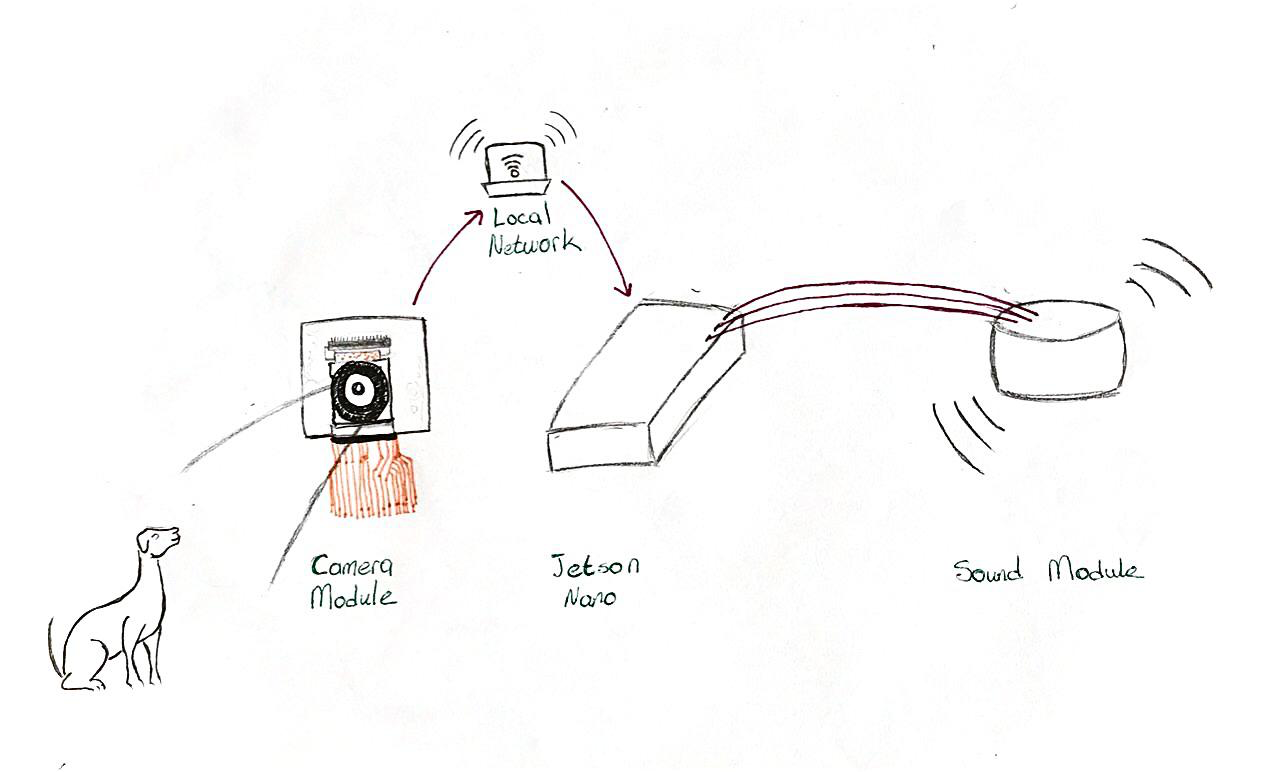 Local
Network
Camera
Module
Jetson
Nano
Sound Module